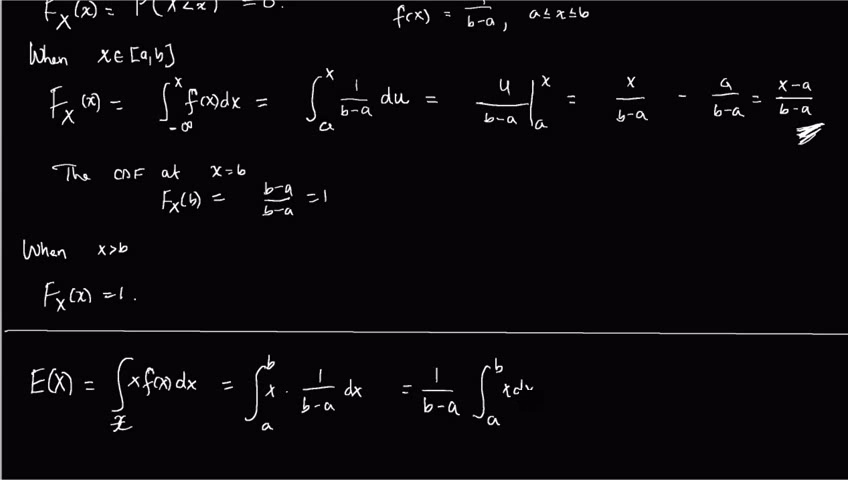 F_X(x) = P(X<x) = 0.
f(x) = 1/(b-a), a ≤ x ≤ b
When x ∈ [a,b]
F_X(x) = ∫_{-∞}^{x} f(x)dx = ∫_{a}^{x} 1/(b-a) du = u/(b-a) |_{a}^{x} = x/(b-a) - a/(b-a) = (x-a)/(b-a)
The CDF at x=b
F_X(b) = (b-a)/(b-a) = 1
When x>b
F_X(x) = 1.
E(X) = ∫_{x} x f(x) dx = ∫_{a}^{b} x · 1/(b-a) dx = 1/(b-a) ∫_{a}^{b} x dx